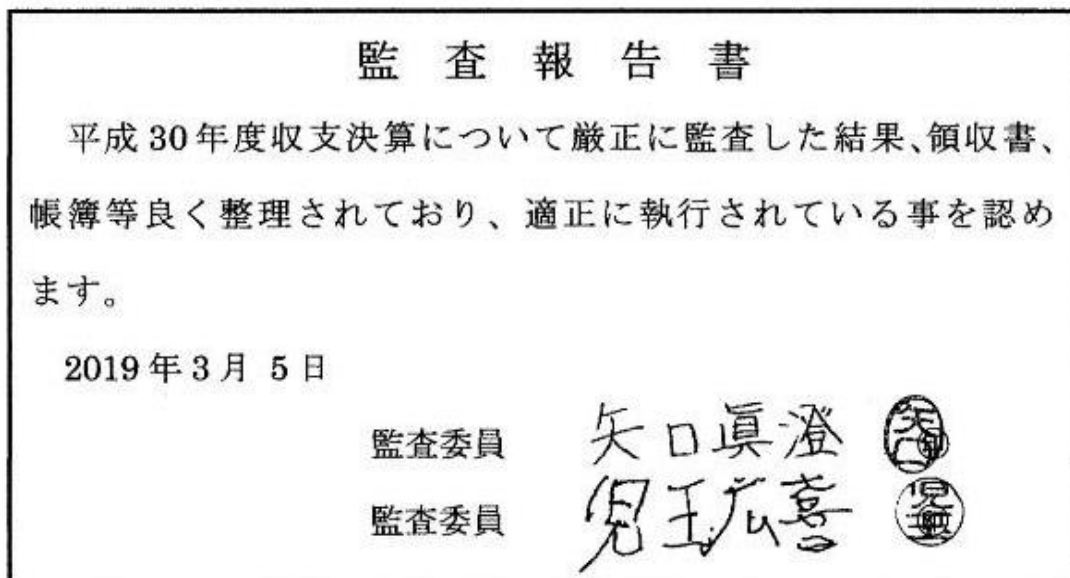 監査報告書
平成30年度収支決算について厳正に監査した結果、領収書、
帳簿等良く整理されており、適正に執行されている事を認め
ます。
2019年3月 5日
監査委員 矢口眞澄 矢口 印
監査委員 児玉広喜 児玉 印